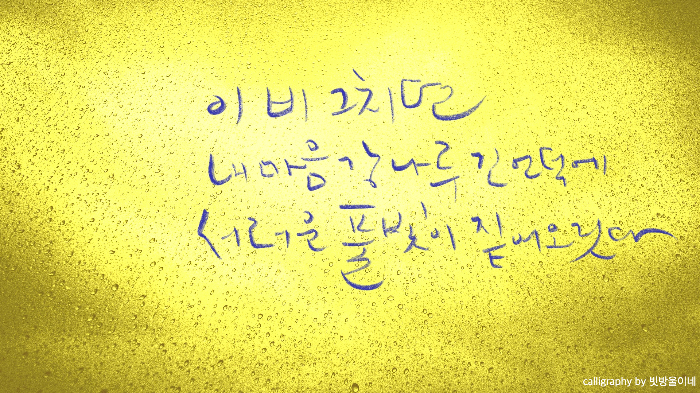 이 비 그치면
내 마음 강나루 긴 언덕에
서러운 풀빛이 짙어오것다
calligraphy by 빗방울이네